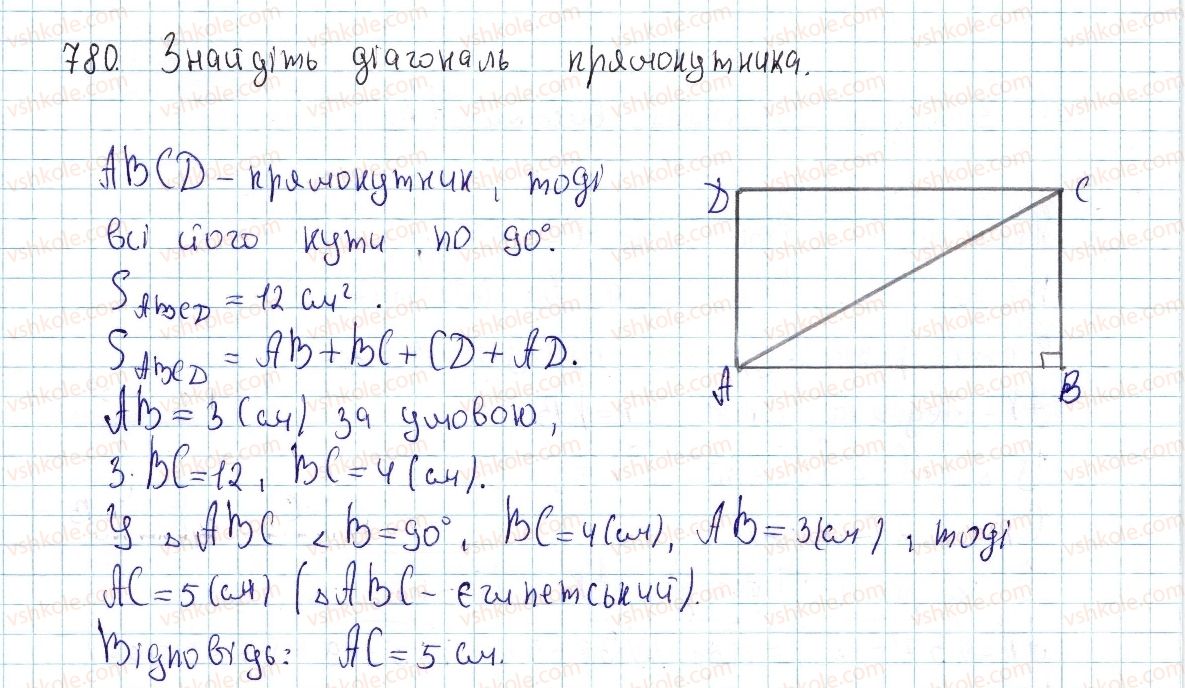 780. Знайдіть діагональ прямокутника.
ABCD – прямокутник, тоді
всі його кути по 90°.
S_ABCD = 12 см².
S_ABCD = AB + BC + CD + AD.
AB = 3 (см) за умовою,
3 · BC = 12, BC = 4 (см).
У ▵ ABC ∠ B = 90°, BC = 4 (см), AB = 3 (см), тоді
AC = 5 (см) (▵ABC – єгипетський).
Відповідь: AC = 5 см.
D C
A B
vshkole.com